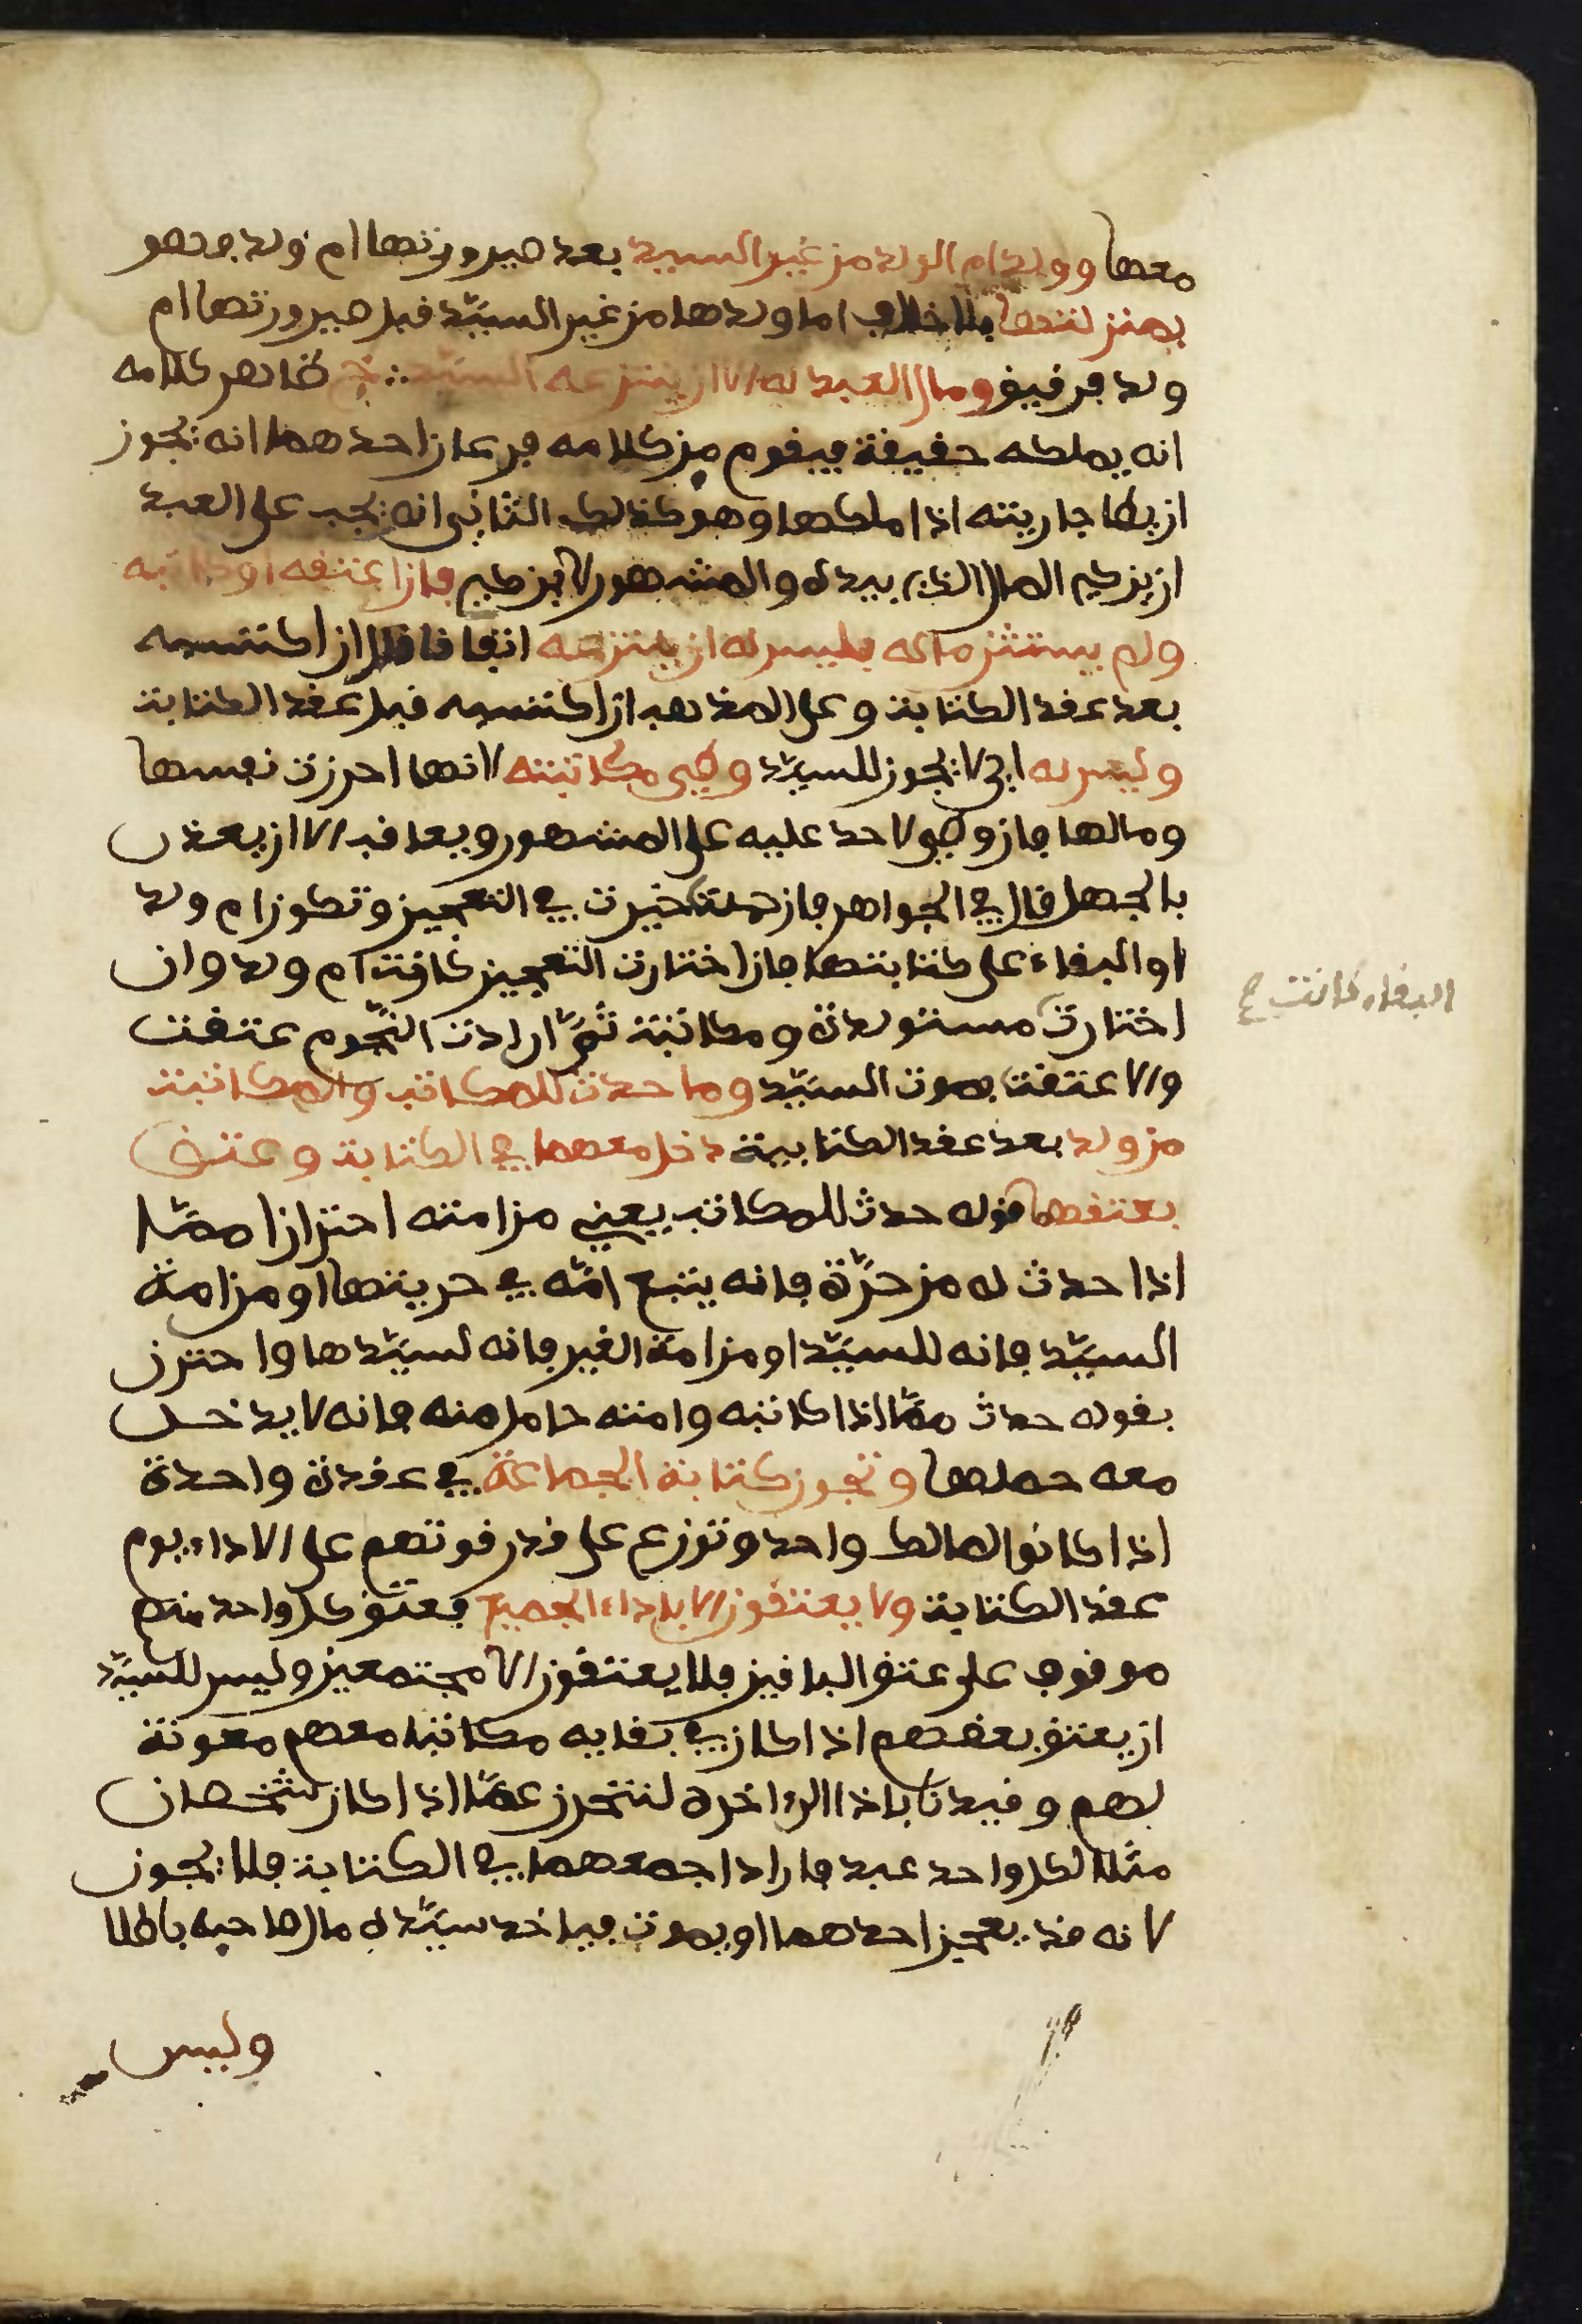 معها وولد ام الولد من غير السيد بعد صيرورتها ام ولد فهو
بمنزلتها بلا خلاف اما ولدها من غير السيّد قبل صيرورتها ام
ولد فرقيق ومال العبد له الا ان ينتزعه السيّد ظاهر كلامه
انه يملكه حقيقة فيقوم من كلامه فرعان احدهما انه يجوز
ان يطا جاريته اذا ملكها وهو كذلك الثاني انه يجب على العبد
ان يزكي المال الذي بيده والمشهور لا يزكي فان اعتقه او كاتبه
ولم يستثن ماله فليس له ان ينتزعه اتفاقا قال ان اكتسبه
بعد عقد الكتابة وعلى المذهب ان اكتسبه قبل عقد الكتابة
وليس له اي لا يجوز للسيّد وطي مكاتبته لانها احرزت نفسها
ومالها فان وطي لا حد عليه على المشهور ويعاقب الا ان يعذر
بالجهل قال في الجواهر فان حملت خيرت في التعجيز وتكون ام ولد
او البقاء على كتابتها فان اختارت التعجيز كانت ام ولد وان
البقاء كانت ح
اختارت مستولدة ومكاتبة ثمّ ان ادت النّجوم عتقت
والا عتقت بموت السيّد وما حدث للمكاتب والمكاتبة
من ولد بعد عقد الكتابة دخل معهما في الكتابة وعتق
بعتقهما قوله حدث للمكاتب يعني من امته احترازا ممّا
اذا حدث له من حرّة فانه يتبع امّه في حريتها او من امة
السيّد فانه للسيّد او من امة الغير فانه لسيّدها واحترز
بقوله حدث ممّا اذا كاتبه وامته حامل منه فانه لا يدخل
معه حملها وتجوز كتابة الجماعة في عقدة واحدة
اذا كانوا لمالك واحد وتوزع على قدر قوتهم على الاداء يوم
عقد الكتابة ولا يعتقون الا باداء الجميع فعتق كل واحد منهم
موقوف على عتق الباقين فلا يعتقون الا مجتمعين وليس للسيّد
ان يعتق بعضهم اذا كان في بقايه مكاتبا معهم معونة
لهم وقيدنا باذا الى اخره لنتحرز عمّا اذا كان شخصان
مثلا لكل واحد عبد فارادا جمعهما في الكتابة فلا يجوز
لانه قد يعجز احدهما او يموت فياخذ سيّده مال صاحبه باطلا
وليس